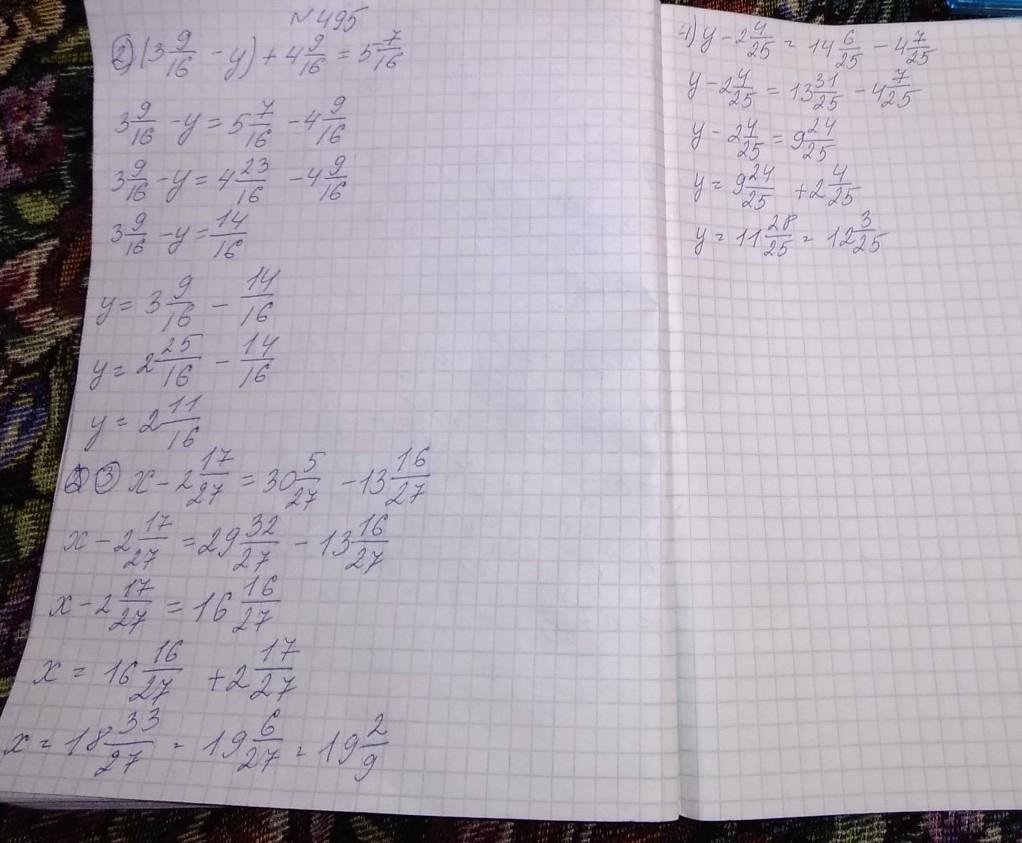 №495
2) (3 9/16 - y) + 4 9/16 = 5 7/16
3 9/16 - y = 5 7/16 - 4 9/16
3 9/16 - y = 4 23/16 - 4 9/16
3 9/16 - y = 14/16
y = 3 9/16 - 14/16
y = 2 25/16 - 14/16
y = 2 11/16
3) x - 2 17/27 = 30 5/27 - 13 16/27
x - 2 17/27 = 29 32/27 - 13 16/27
x - 2 17/27 = 16 16/27
x = 16 16/27 + 2 17/27
x = 18 33/27 = 19 6/27 = 19 2/9
4) y - 2 4/25 = 14 6/25 - 4 7/25
y - 2 4/25 = 13 31/25 - 4 7/25
y - 2 4/25 = 9 24/25
y = 9 24/25 + 2 4/25
y = 11 28/25 = 12 3/25